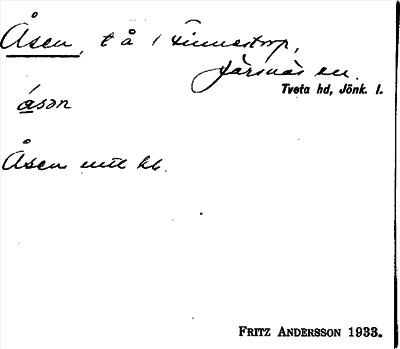 Åsen, t å / Finnestorp,
Järsnäs sn.
Tveta hd, Jönk. l.
åsən
Åsen enl kb.
FRITZ ANDERSSON 1933.